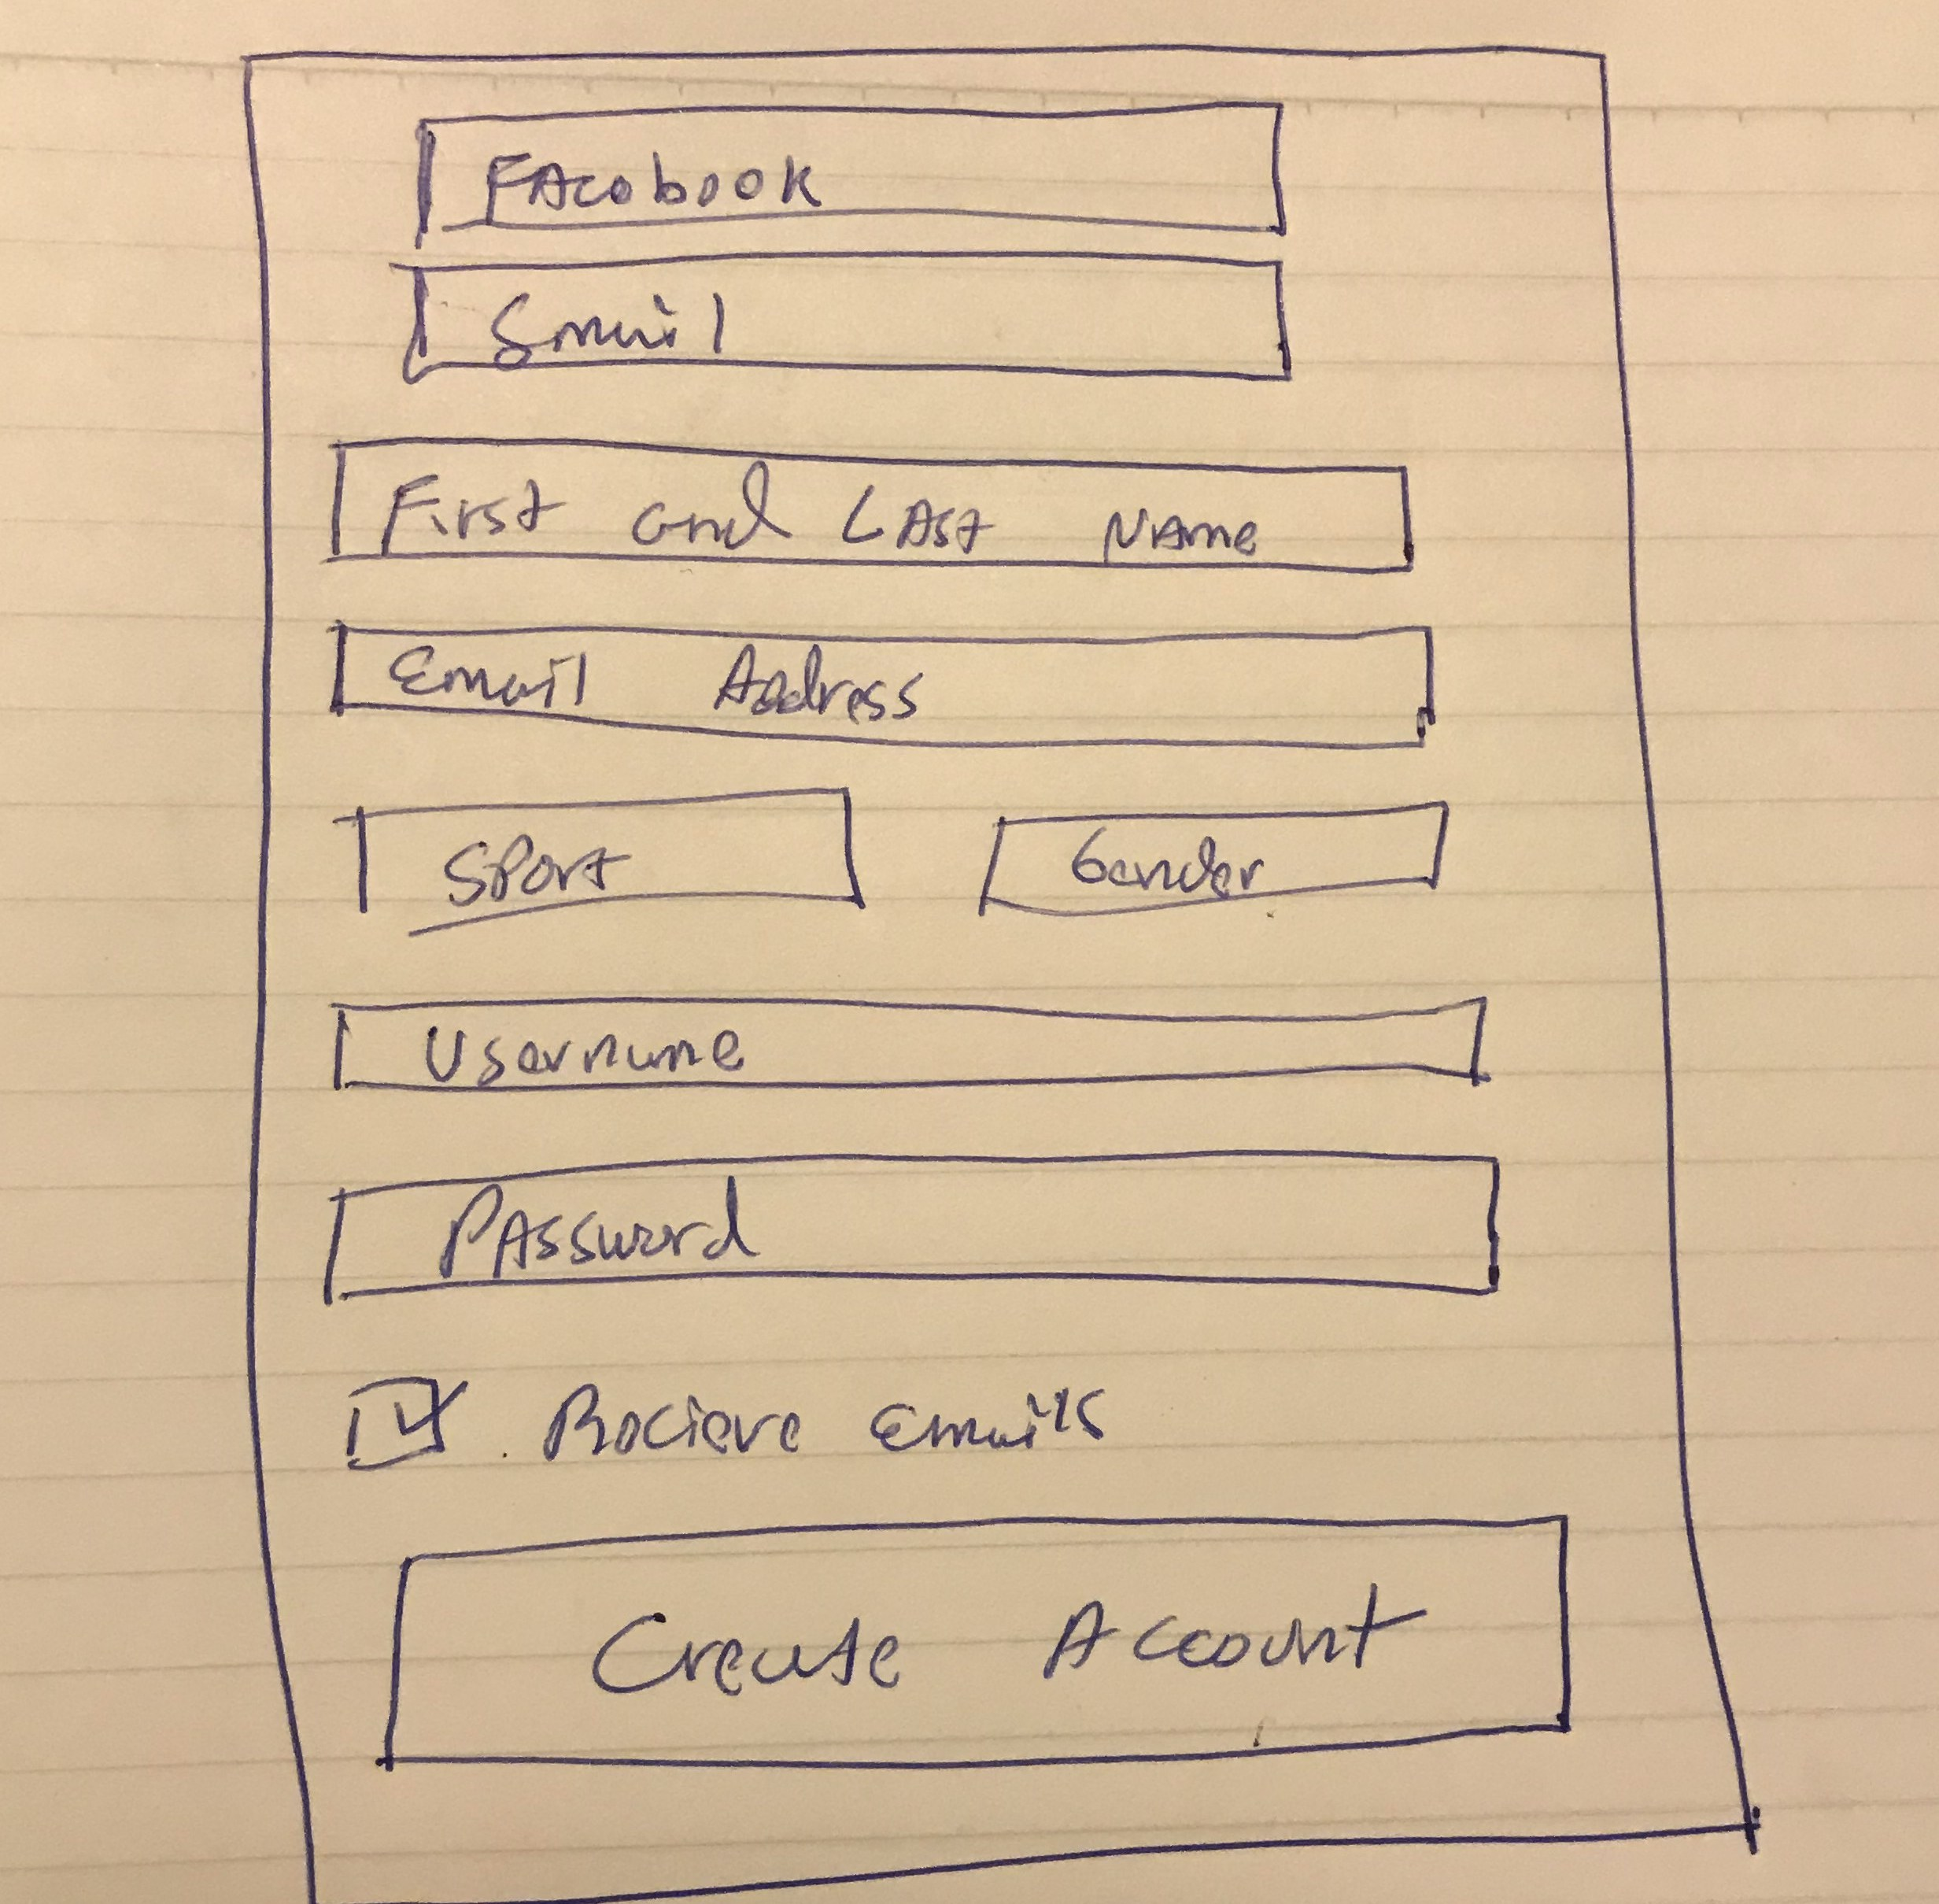 Facebook
Gmail
First and Last Name
Email Address
Sport Gender
Username
Password
Recieve Emails
Create Account